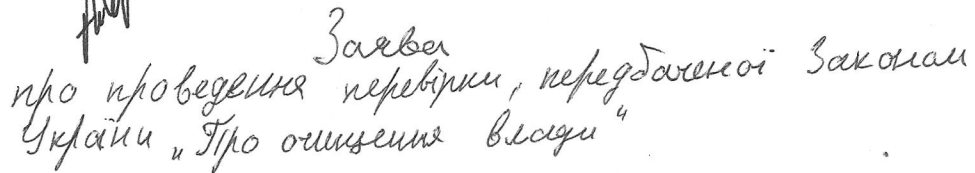 Заява
про проведення перевірки, передбаченої Законом
України „Про очищення влади“